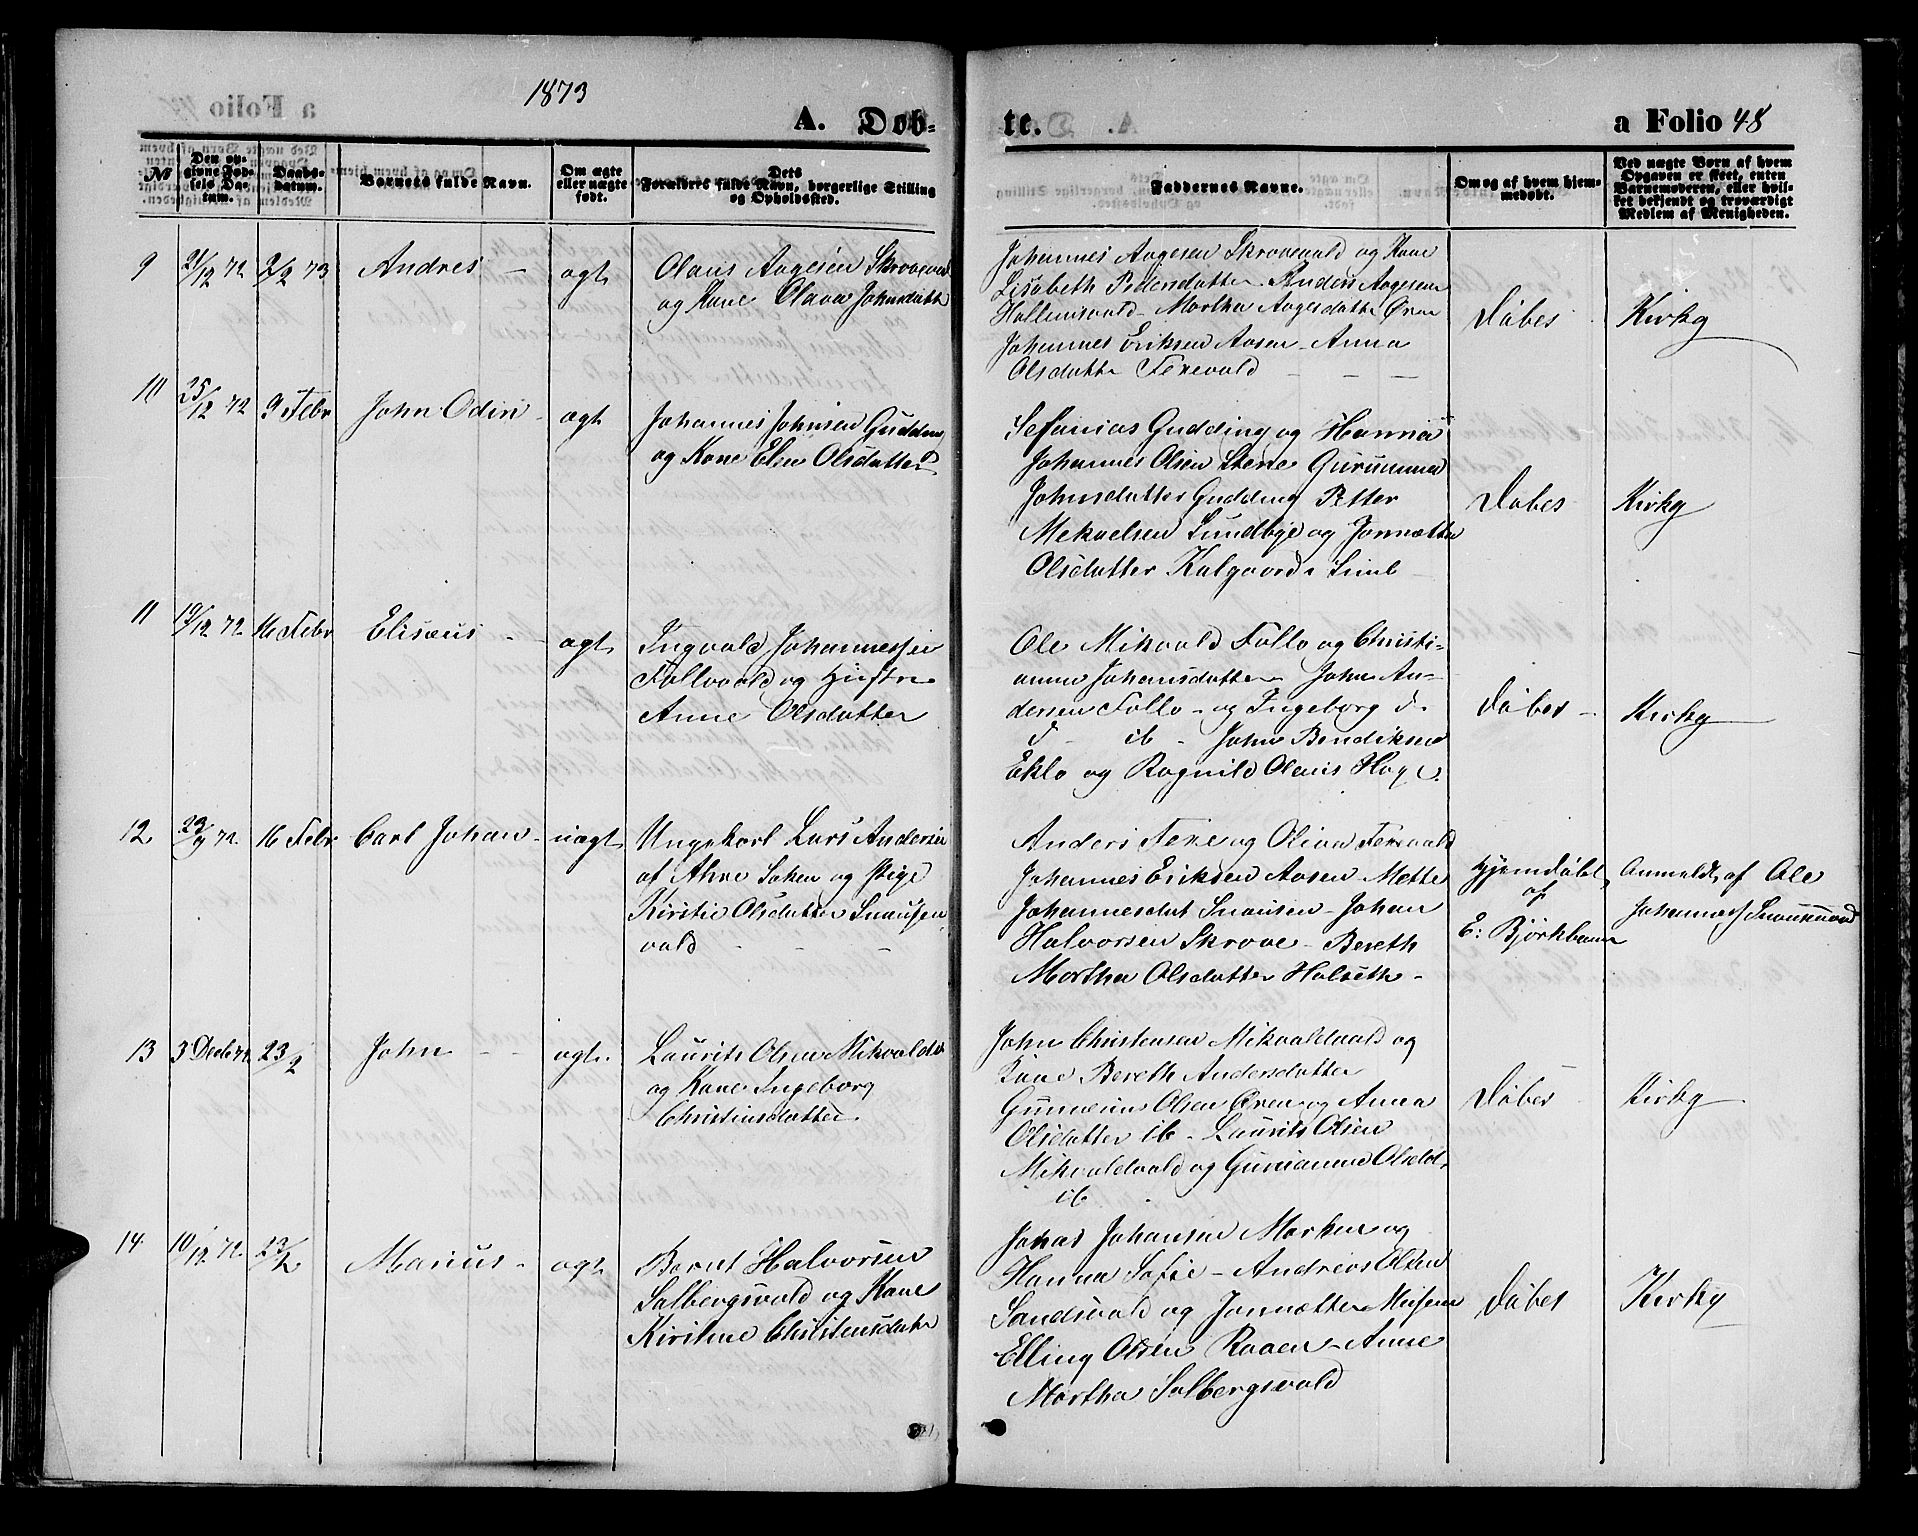 1873
A. Døb-
te.
a Folio 48
№
Den op-
givne Fød-
sels Da-
tum.
Daabs-
datum.
Barnets fulde Navn.
Om ægte
eller uægte
født.
Dets
Forældres fulde Navn, borgerlige Stilling
og Opholdssted.
Faddernes Navne.
Om og af hvem hjem-
medøbt.
Ved uægte Børn af hvem
Opgaven er skeet, enten
Barnemoderen, eller hvil-
ket bekjendt og troværdigt
Medlem af Menigheden.
9 21/12 72 2/2 73 Andres - ægt
Olaus Aagesen Skrovevald
og Kone Olava Johnsdatte
Johannes Aagesen Skrovevald og Kone
Lisabeth Pedersdatter. Anders Aagesen
Hallemsvald - Martha Aagesdatte Øren
Johannes Eriksen Aasen - Anna
Olsdatte Ferevald
Døbes Kirkg
10 25/12 72 9 Febr John Odin - ægt
Johannes Johnsen Gudding
og Kone Elen Olsdatter
Sefanias Gudding og Hanna
Johannes Olsen Stene Gurumma
Johnsdatter Gudding Petter
Mekaelsen Sundbye og Jonnætta
Olsdatter Kalgaard
Døbes Kirkg
11 19/12 72 16 Febr Elisæus - ægt
Ingvald Johannessen
Follvald og Hustru
Anne Olsdatter
Ole Mikvold Follo og Christi-
anna Johansdatter John An-
dersen Follo - og Ingeborg d.
d - ib - John Bendiksen
Eklo og Ragnild Olaus Hage.
Døbes - Kirkg
12 23/9 72 16 Febr Carl Johan - uægt
Ungekarl Lars Andersen
af Ahre Soken og Pige
Kirstie Olsdatter Snausen
vald
Anders Fere og Olina Ferevald
Johannes Eriksen Aasen Mette
Johannesdat Snausen - Johan
Halvorsen Skrove - Bereth
Martha Olsdatter Halseth -
Hjemdøbt
af
E: Bjørkhaun
Anmeldt af Ole
Johannes Snausenvald
13 3 Decb 72 23/2 John - - ægt.
Laurits Olsen Mikvoldv
og Kone Ingeborg
Christiansdatter
John Christensen Mikvoldvald og
Kone Bereth Andersdatter
Gunnerius Olsen Øren og Anna
Olsdatter ib - Laurits Olsen
Mikvoldvald og Gurianna Olsdat
ib
Døbes Kirkg
14 10/12 72. 23/2 Marius - ægt
Bernt Halvorsen
Salbergsvald og Kone
Kirstine Christensdatr
Johas Johansen Marken og
Hanna Sofie - Andreas Olsen
Sandsvald og Jonnætta
Elling Olsen Raaen - Anne
Martha Salbergsvald
Døbes Kirkg